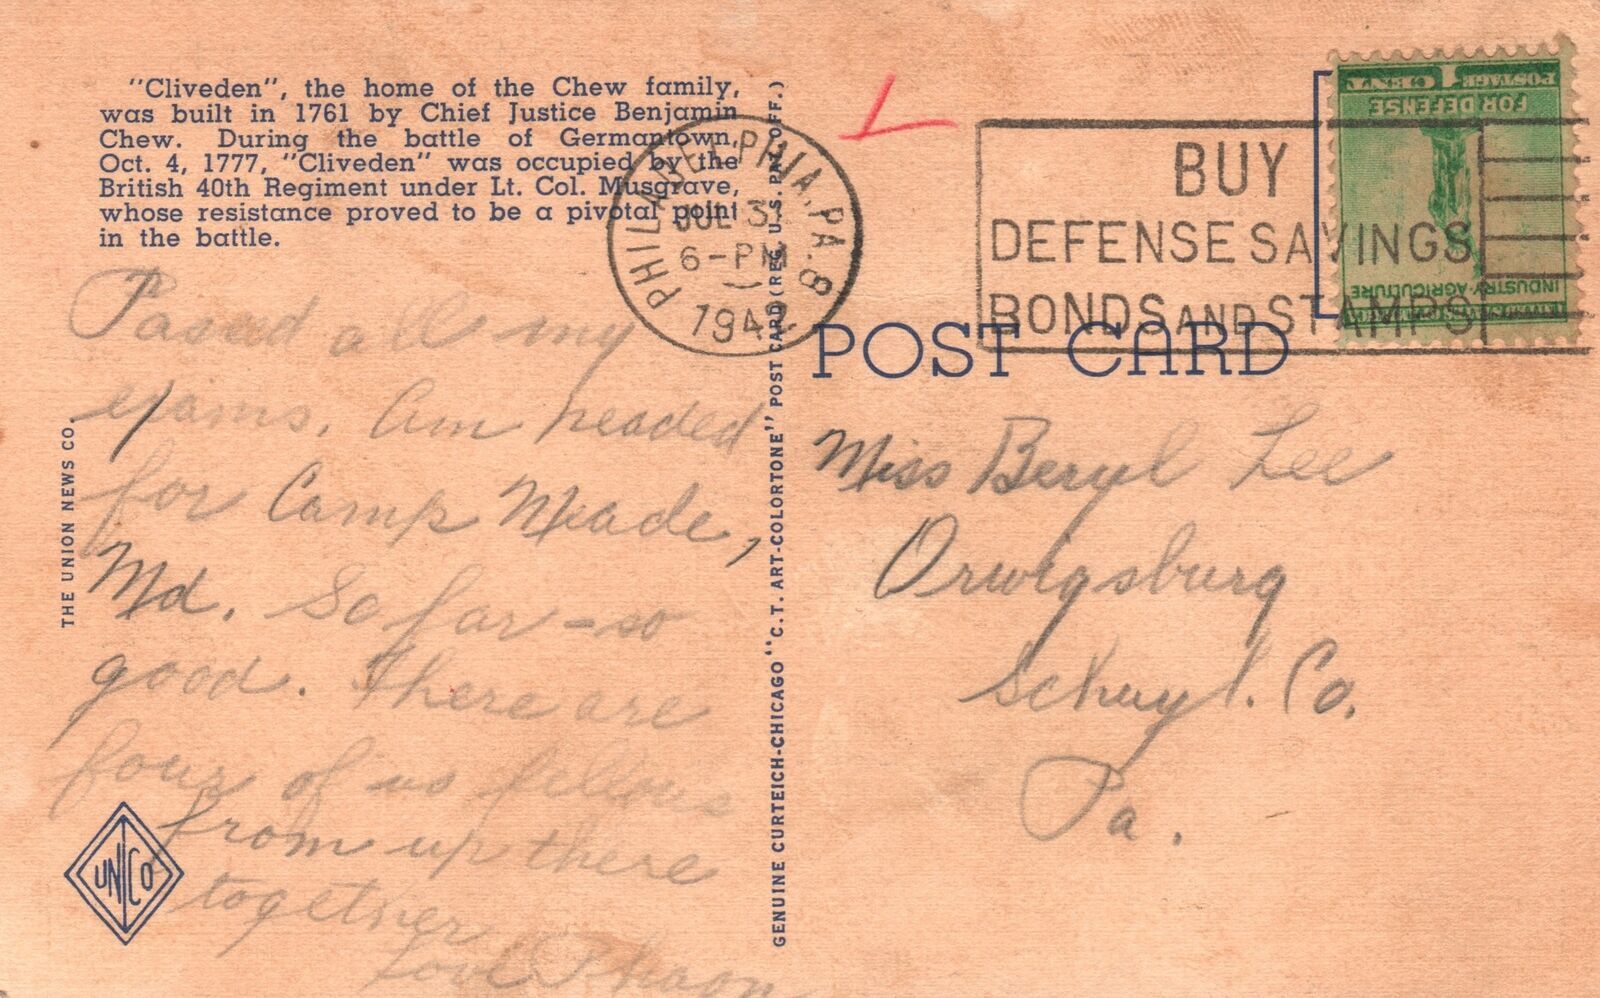 "Cliveden", the home of the Chew family,
was built in 1761 by Chief Justice Benjamin
Chew. During the battle of Germantown,
Oct. 4, 1777, "Cliveden" was occupied by the
British 40th Regiment under Lt. Col. Musgrave,
whose resistance proved to be a pivotal point
in the battle.
Passed all my
exams. Am headed
for Camp Meade,
Md. So far - so
good. There are
four of us fellows
from up there
together
Love
THE UNION NEWS CO.
UNCO
GENUINE CURTEICH-CHICAGO "C.T. ART-COLORTONE" POST CARD (REG. U.S. PAT. OFF.)
PHILADELPHIA, PA. 8
JUL 31
6-PM
1942
BUY
DEFENSE SAVINGS
BONDS AND STAMPS
POSTAGE 1 CENT
FOR DEFENSE
INDUSTRY-AGRICULTURE
POST CARD
Miss Beryl Lee
Orwigsburg
Schuyl. Co.
Pa.